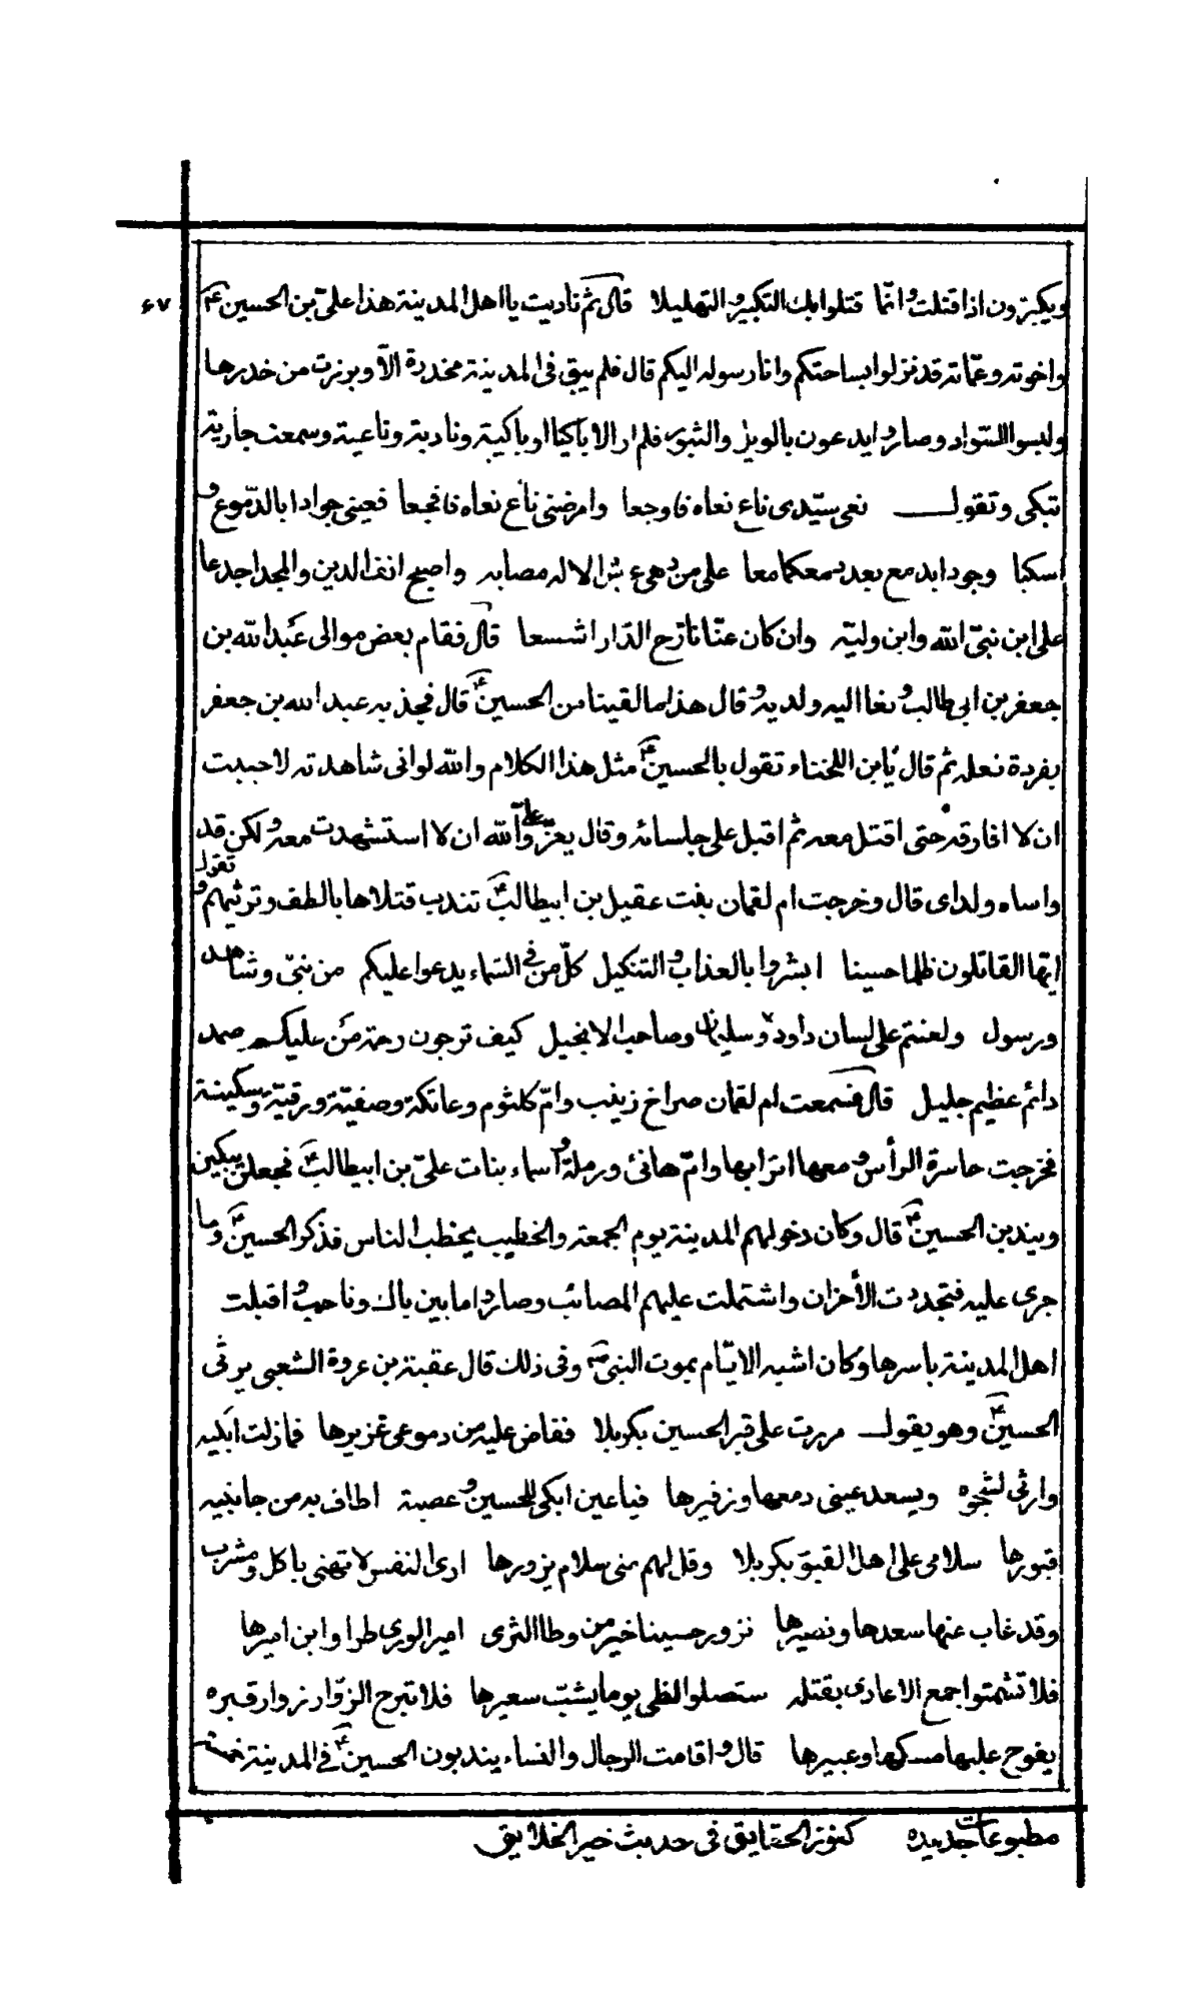 ويكبّرون اذا قتلت وانّما قتلوا بك التكبير والتهليلا قال ثم ناديت يا اهل المدينة هذا علىّ بن الحسين ع
٤٧
واخوته وعمّاته قد نزلوا بساحتكم وانا رسوله اليكم قال فلم يبق فى المدينة مخدرة الّا وبرزت من خدرها
ولبسوا السّواد وصاروا يدعون بالويل والثبور فلم ار الا باكيا او باكية ونادبة وناعية وسمعت جارية
تبكى وتقول نعى سيّدى ناع نعاه فاوجعا وامرضنى ناع نعاه فافجعا فعينى جوادا بالدّموع و
اسكبا وجودا بدمع بعد دمعكما معا على من دهى عرش الاله مصابه واصبح انف الدين والمجد اجدعا
على ابن نبىّ الله وابن وليّه وان كان عنّا نازح الدّار اشسعا قال فقام بعض موالى عبد الله بن
جعفر بن ابى طالب ونعا اليه ولديه وقال هذا ما لقينا من الحسين ع قال فجذبه عبد الله بن جعفر
بفردة نعله ثم قال يا بن اللخناء تقول بالحسين ع مثل هذا الكلام والله لو انى شاهدته لاحببت
ان لا افارقه حتى اقتل معه ثم اقبل على جلسائه وقال يعزّ علىّ والله ان لا استشهدت معه ولكن قد
واساه ولداى قال وخرجت ام لقمان بنت عقيل بن ابيطالب ع تندب قتلاها بالطف وترثيهم وتقول
ايّها القاتلون ظلما حسينا ابشروا بالعذاب والتنكيل كلّ من فى السّماء يدعوا عليكم من نبىّ وشاهد
ورسول ولعنتم على لسان داود وسليمان وصاحب الانجيل كيف ترجون رحمة من عليكم صمد
دائم عظيم جليل قال فسمعت ام لقمان صراخ زينب وامّ كلثوم وعاتكة وصفيّة ورقيّة وسكينة
فخرجت حاسرة الرأس ومعها اترابها وامّ هانئ ورملة واسماء بنات علىّ بن ابيطالب ع فجعلن يبكين
ويندبن الحسين ع قال وكان دخولهم المدينة يوم الجمعة والخطيب يخطب الناس فذكر الحسين ع وما
جرى عليه فتجددت الأحزان واشتملت عليهم المصائب وصاروا ما بين باك وناحب واقبلت
اهل المدينة باسرها وكان اشبه الايّام بموت النبى ص وفى ذلك قال عقبة بن عروة الشعبى يرثى
الحسين ع وهو يقول مررت على قبر الحسين بكربلا ففاض عليه من دموعى غزيرها فما زلت ابكيه
وارثى لشجوه ويسعد عينى دمعها وزفيرها فيا عين ابكى للحسين وعصبة اطاف به من جانبيه
قبورها سلامى على اهل القبور بكربلا وقل لهم منى سلام يزورها ارى النفس لا تهنى باكل ومشرب
وقد غاب عنها سعدها ونصيرها نزور حسينا خير من وطا الثرى امير الورى طرا وابن اميرها
فلا تشمتوا جمع الاعادى بقتله ستصلوا لظى يوما يشبّ سعيرها فلا تبرح الزوّار زوار قبره
يفوح عليها مسكها وعبيرها قال واقامت الرجال والنساء يندبون الحسين ع فى المدينة خمسة
مطبوعات جديده كنوز الحقايق فى حديث خير الخلايق